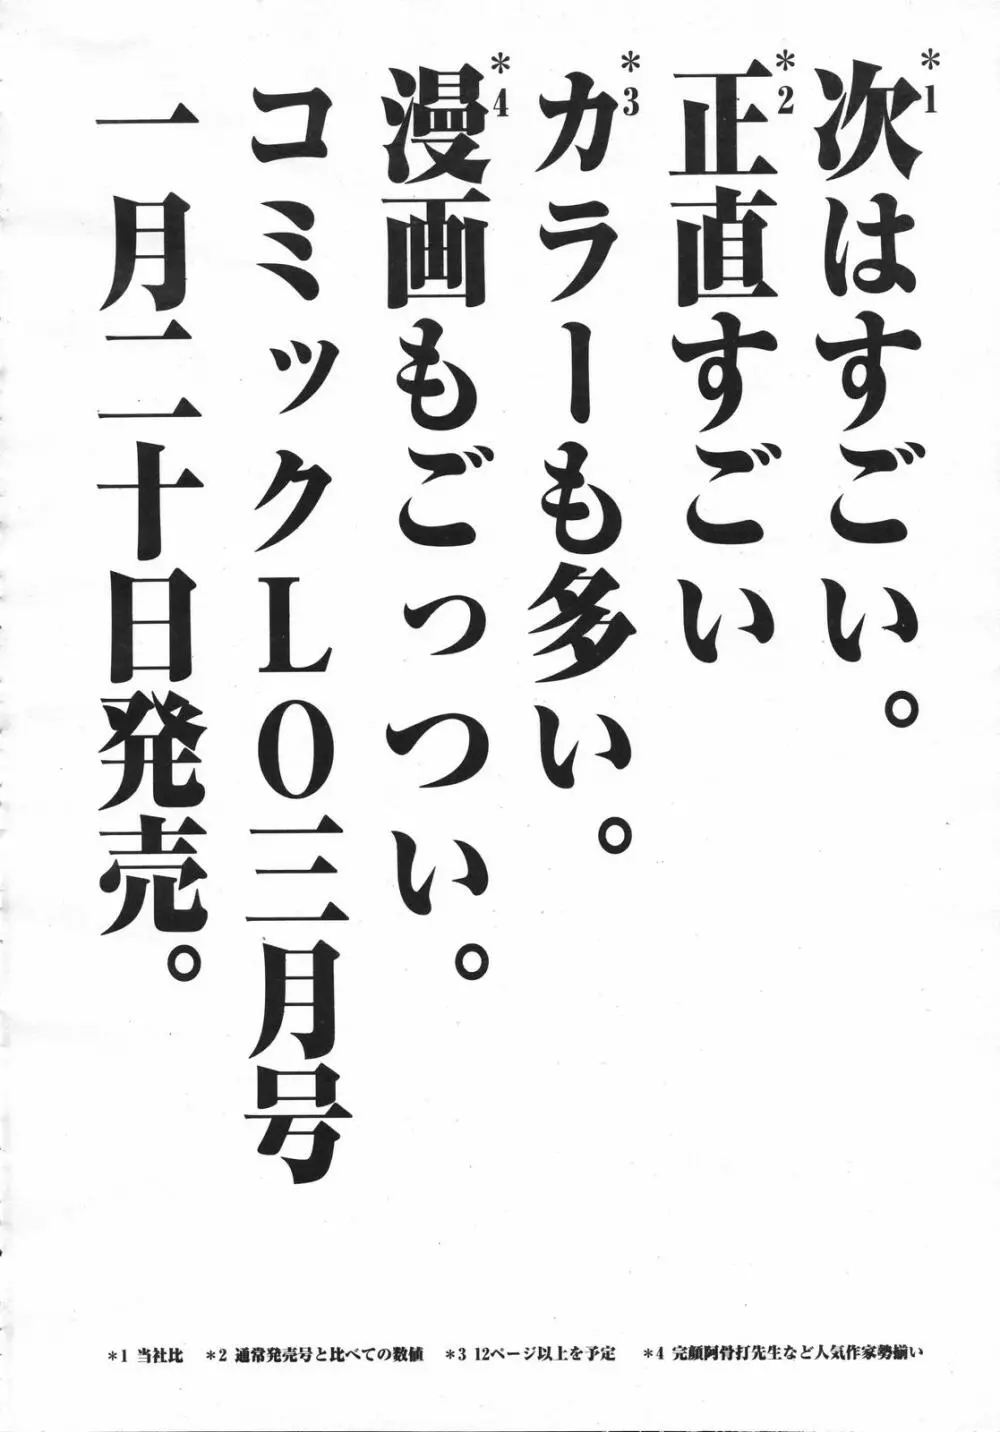 *1
次はすごい。
*2
正直すごい
*3
カラーも多い。
*4
漫画もごっつい。
コミックLO三月号
一月二十日発売。
*1 当社比
*2 通常発売号と比べての数値
*3 12ページ以上を予定
*4 完顔阿骨打先生など人気作家勢揃い